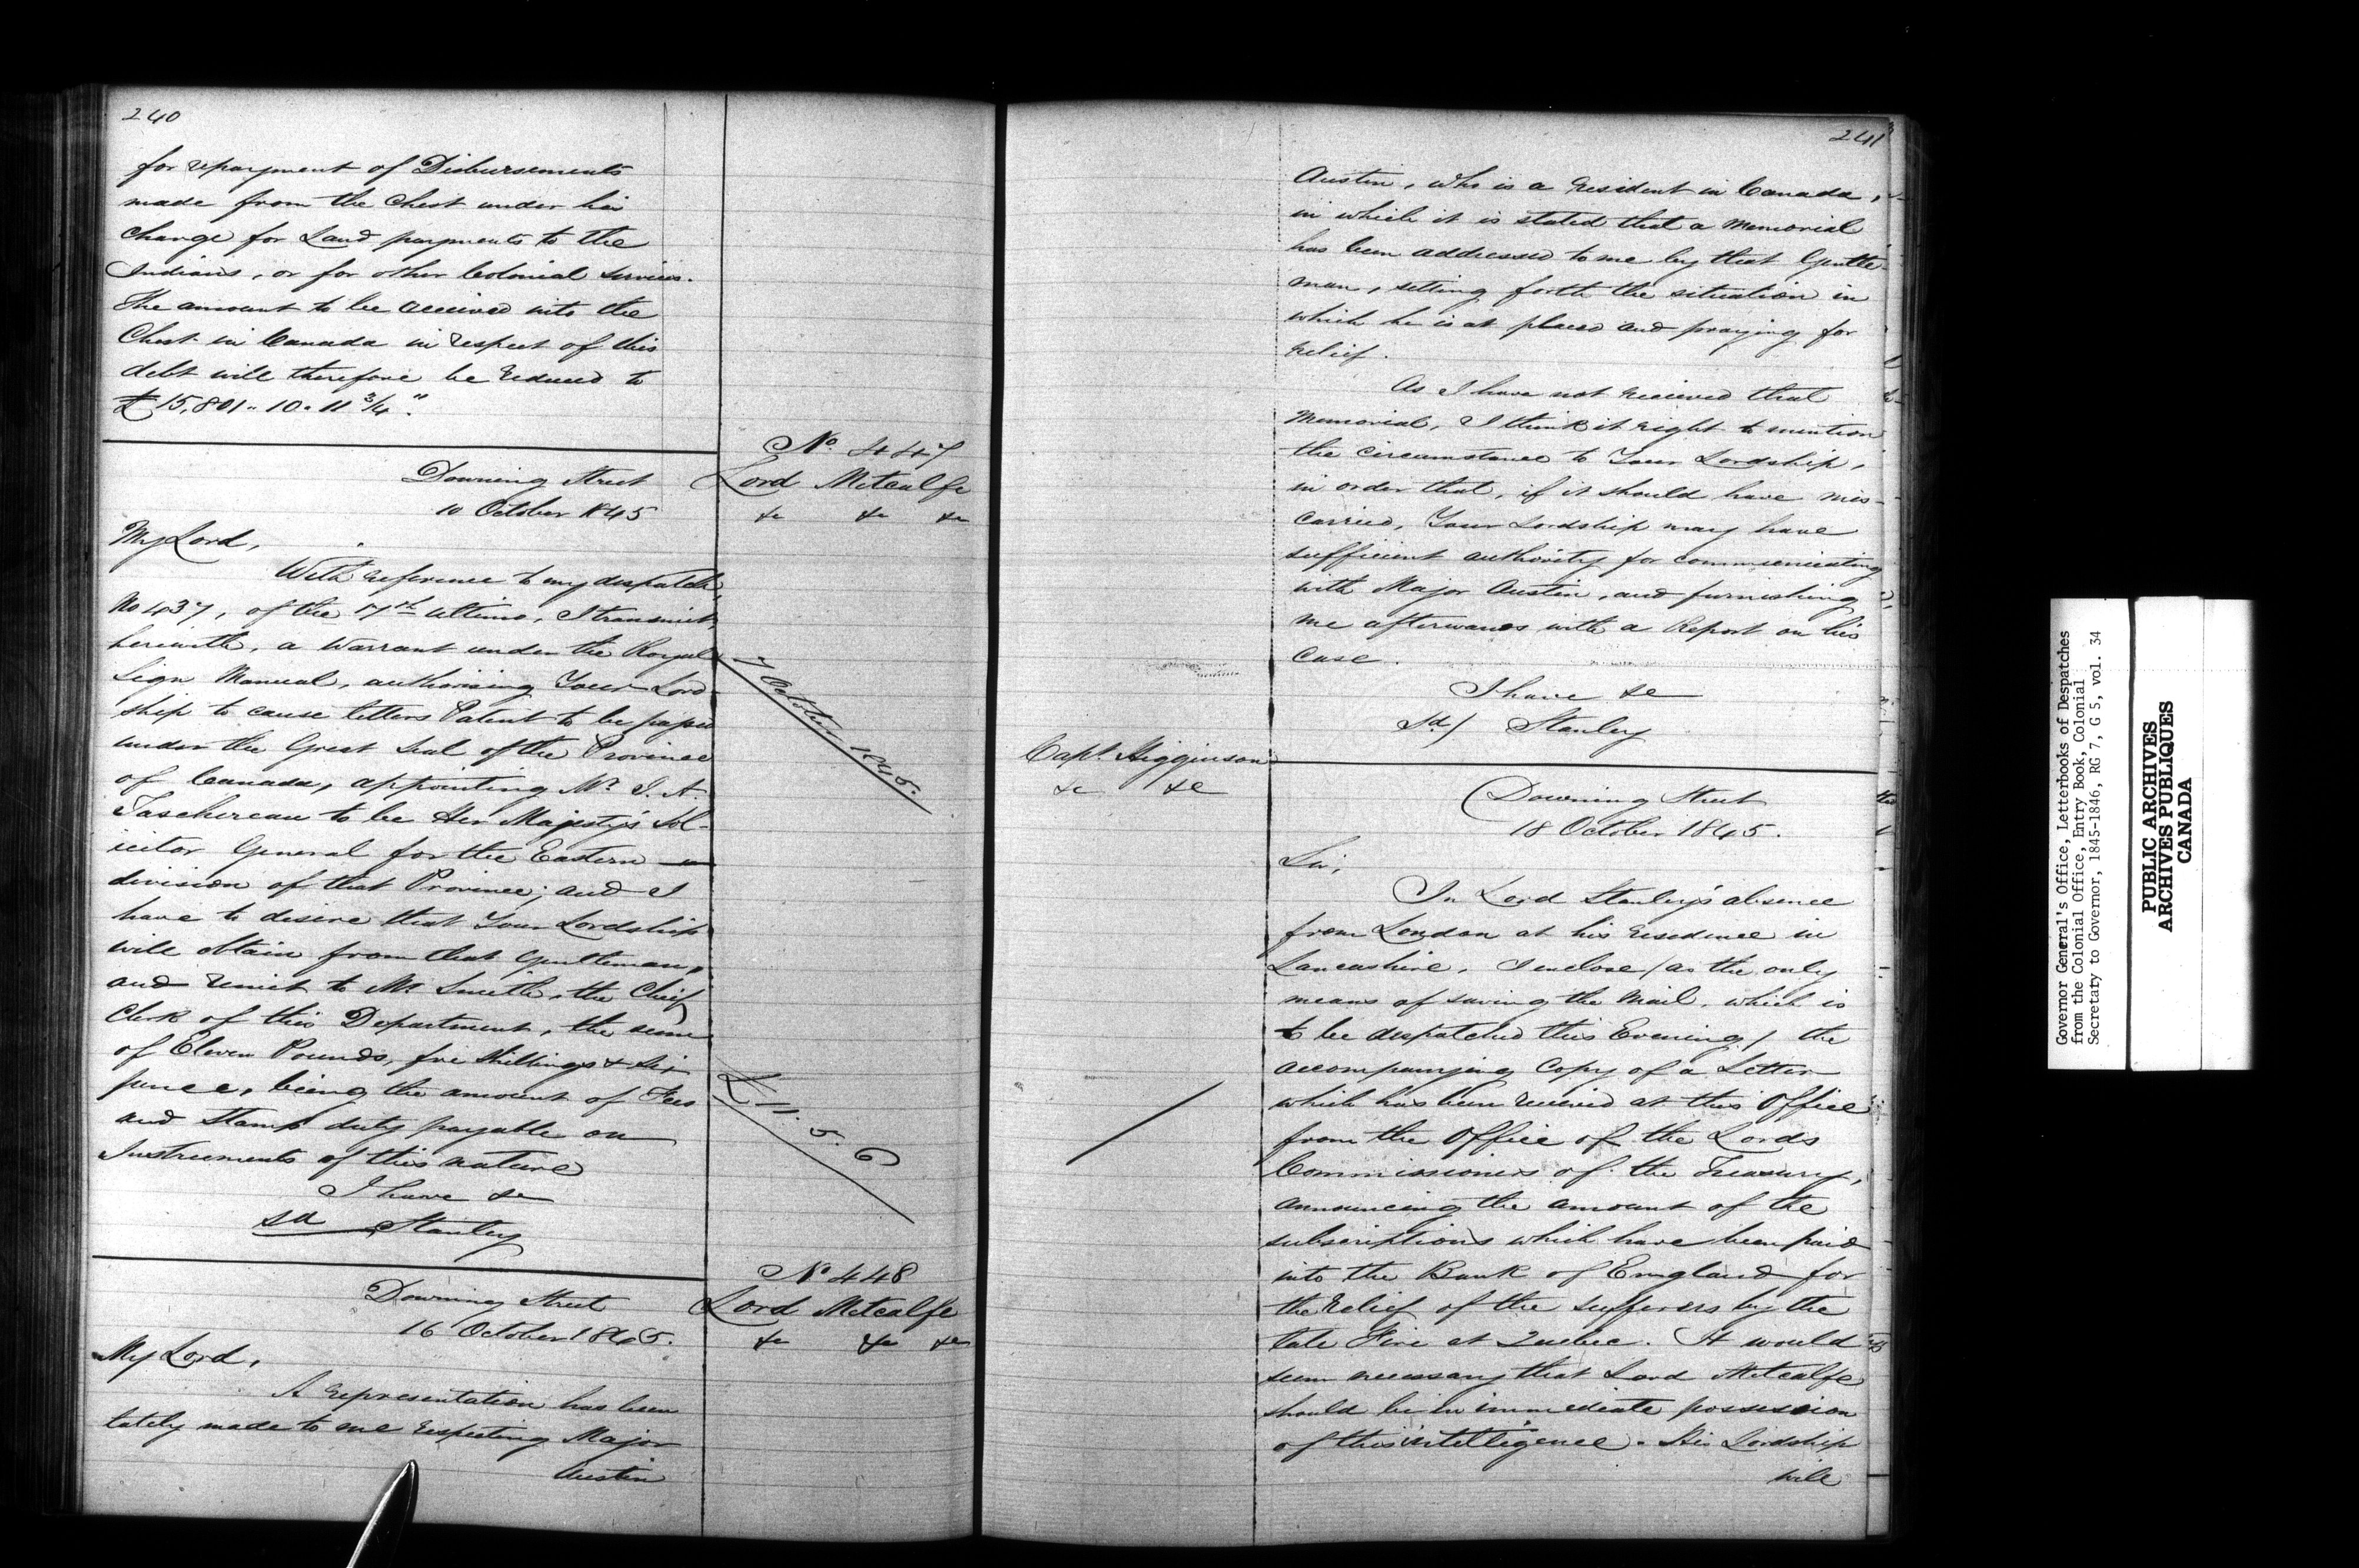 240
for repayment of Disbursements
made from the Chest under his
charge for Land payments to the
Indians, or for other Colonial services.
The amount to be received into the
Chest in Canada in respect of this
debt will therefore be reduced to
£15,801 " 10 " 11 3/4 ".
No. 447
Lord Metcalfe
&c &c &c
Downing Street
10 October 1845
My Lord,
With reference to my despatch,
No 437, of the 17th Ultimo, I transmit,
herewith, a Warrant under the Royal
Sign Manual, authorising Your Lord-
ship to cause letters Patent to be passed
under the Great Seal of the Province
of Canada, appointing Mr. J. A.
Taschereau to be Her Majesty's Sol-
icitor General for the Eastern
division of that Province; and I
have to desire that Your Lordship
will obtain from that Gentleman,
and remit to Mr Smith, the Chief
Clerk of this Department, the sum
of Eleven Pounds, five Shillings & Six
pence, being the amount of Fees
and Stamp duty payable on
Instruments of this nature
I have &c
sd Stanley
7 October 1845.
£11. 5. 6
No 448
Lord Metcalfe
&c &c &c
Downing Street
16 October 1845.
My Lord,
A representation has been
lately made to me respecting Major
Austin
241
Austin, who is a resident in Canada,
in which it is stated that a Memorial
has been addressed to me by that Gentle-
man, setting forth the situation in
which he is at placed and praying for
relief.
As I have not received that
Memorial, I think it right to mention
the circumstance to Your Lordship,
in order that, if it should have mis-
carried, Your Lordship may have
sufficient authority for communicating
with Major Austin, and furnishing
me afterwards with a Report on his
case.
I have &c
Sd/ Stanley
Capt. Higginson
&c &c
Downing Street
18 October 1845.
Sir,
In Lord Stanley's absence
from London at his residence in
Lancashire, I enclose / as the only
means of saving the Mail, which is
to be despatched this Evening / the
accompanying Copy of a Letter
which has been received at this Office
from the Office of the Lords
Commissioners of the Treasury,
announcing the amount of the
subscriptions which have been paid
into the Bank of England for
the relief of the sufferers by the
late Fire at Quebec. It would
seem necessary that Lord Metcalfe
should be in immediate possession
of this intelligence. His Lordship
will
Governor General's Office, Letterbooks of Despatches
from the Colonial Office, Entry Book, Colonial
Secretary to Governor, 1845-1846, RG 7, G 5, vol. 34
PUBLIC ARCHIVES
ARCHIVES PUBLIQUES
CANADA